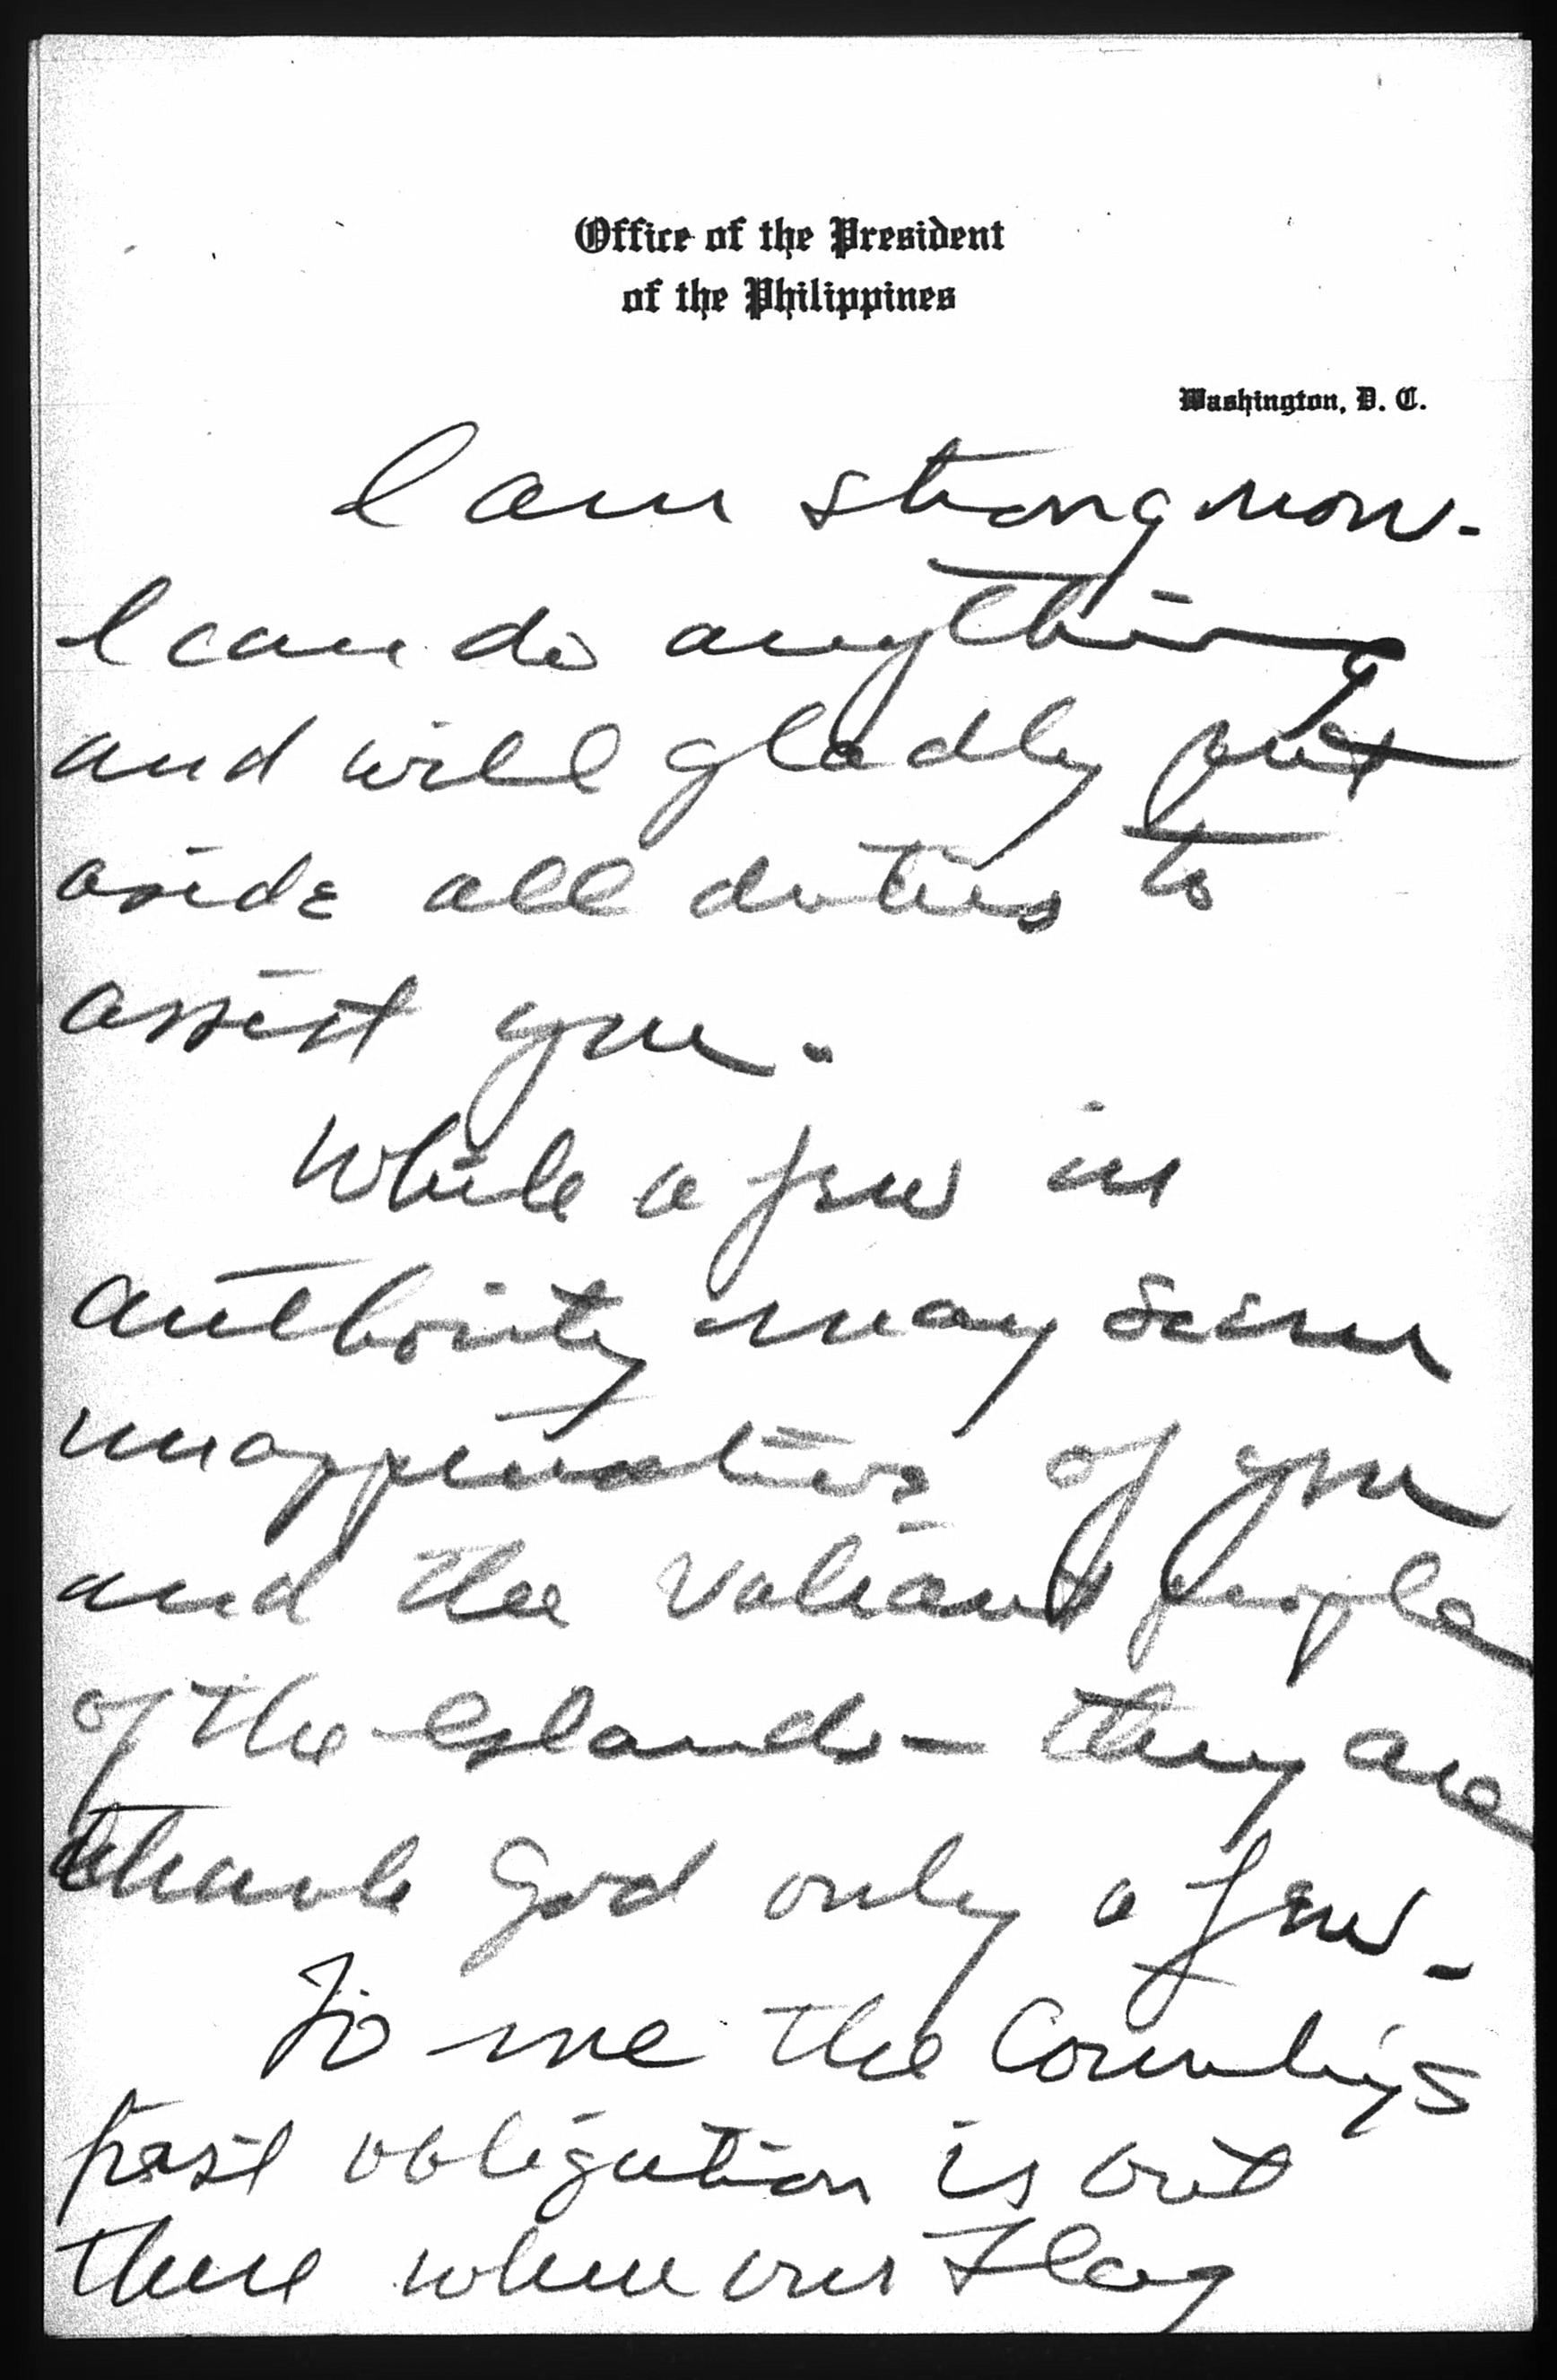 Office of the President
of the Philippines
Washington, D. C.
I am strong now.
I can do anything
and will gladly put
aside all duties to
assist you.
While a few in
authority may seem
unappreciative of you
and the valiant people
of the Islands - they are
thank God only a few -
To me the Country's
first obligation is out
there where our Flag